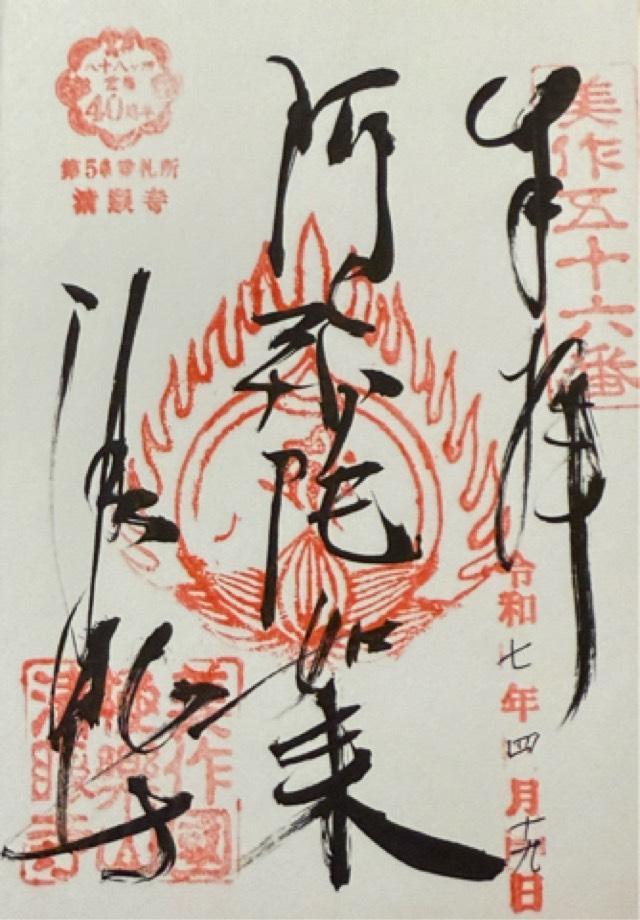 美作五十六番
奉拝
令和七年四月十九日
阿弥陀如来
八十八ヶ所
40周年
第56番札所
清眼寺
清眼寺
美作國
極樂山
清眼寺